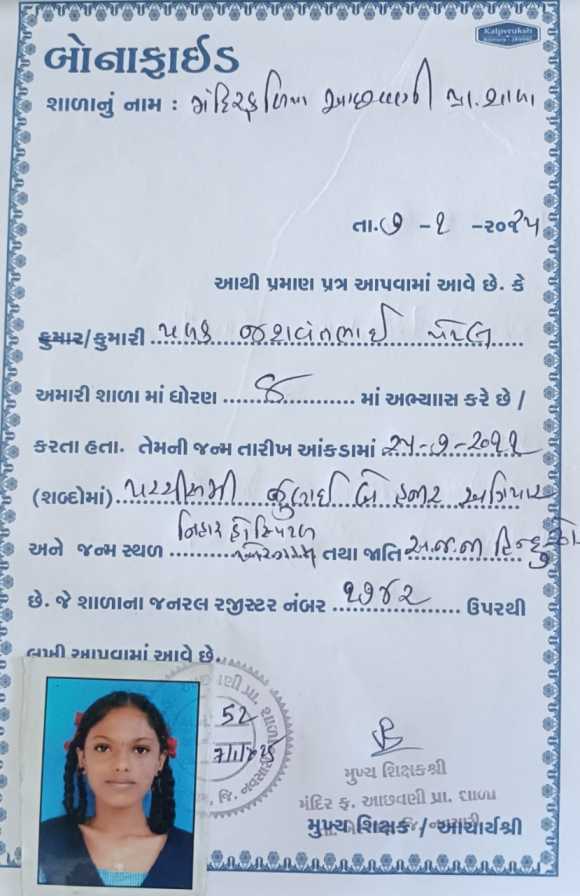 Kalpvruksh
બોનાફાઈડ
શાળાનું નામ : મંદિરફળિયા આછવણી પ્રા. શાળા
તા.૭ -૧ -૨૦૨૫
આથી પ્રમાણ પ્રત્ર આપવામાં આવે છે. કે
કુમાર/કુમારી પલક જશવંતભાઈ પટેલ
અમારી શાળા માં ધોરણ ...... ૮ ............ માં અભ્યાાસ કરે છે /
કરતા હતા. તેમની જન્મ તારીખ આંકડામાં ૨૫-૭-૨૦૧૧
(શબ્દોમાં) પચ્ચીસમી જુલાઈ બે હજાર અગિયાર
અને જન્મ સ્થળ ......... તથા જાતિ અ.જ.જા હિન્દુ
છે. જે શાળાના જનરલ રજીસ્ટર નંબર ૧૭૪૨ ........ ઉપરથી
લખી આપવામાં આવે છે.
52
7/1/2025
મુખ્ય શિક્ષકશ્રી
મંદિર ફ. આછવણી પ્રા. શાળા
મુખ્ય શિક્ષક / આચાર્યશ્રી